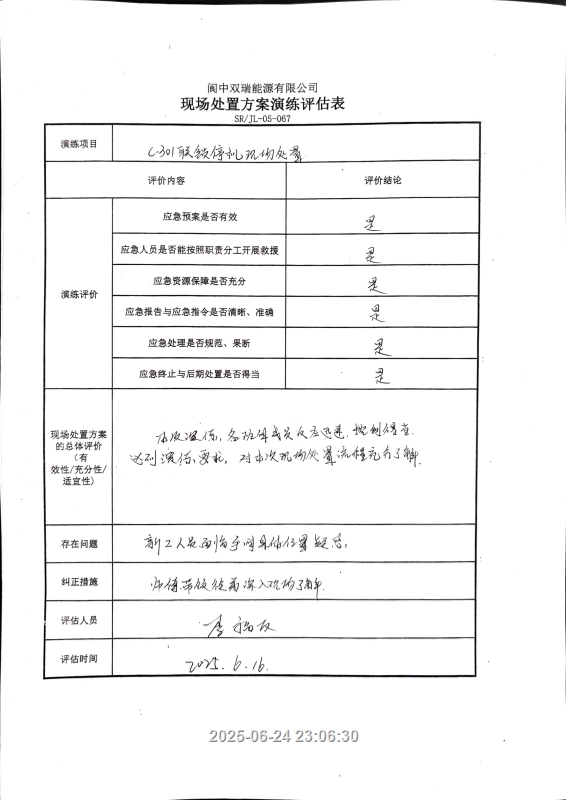 阆中双瑞能源有限公司
现场处置方案演练评估表
SR/JL-05-067
演练项目
C-301联锁停机现场处置
评价内容
评价结论
演练评价
应急预案是否有效
是
应急人员是否能按照职责分工开展救援
是
应急资源保障是否充分
是
应急报告与应急指令是否清晰、准确
是
应急处理是否规范、果断
是
应急终止与后期处置是否得当
是
现场处置方案
的总体评价
(有
效性/充分性/
适宜性)
本次演练,各班组成员反应迅速,
达到演练要求,对本次现场处置流程充分了解.
存在问题
新工人员面临手阀具体位置疑惑。
纠正措施
师傅带领徒弟深入现场了解.
评估人员
李
评估时间
2025.6.16.
2025-06-24 23:06:30